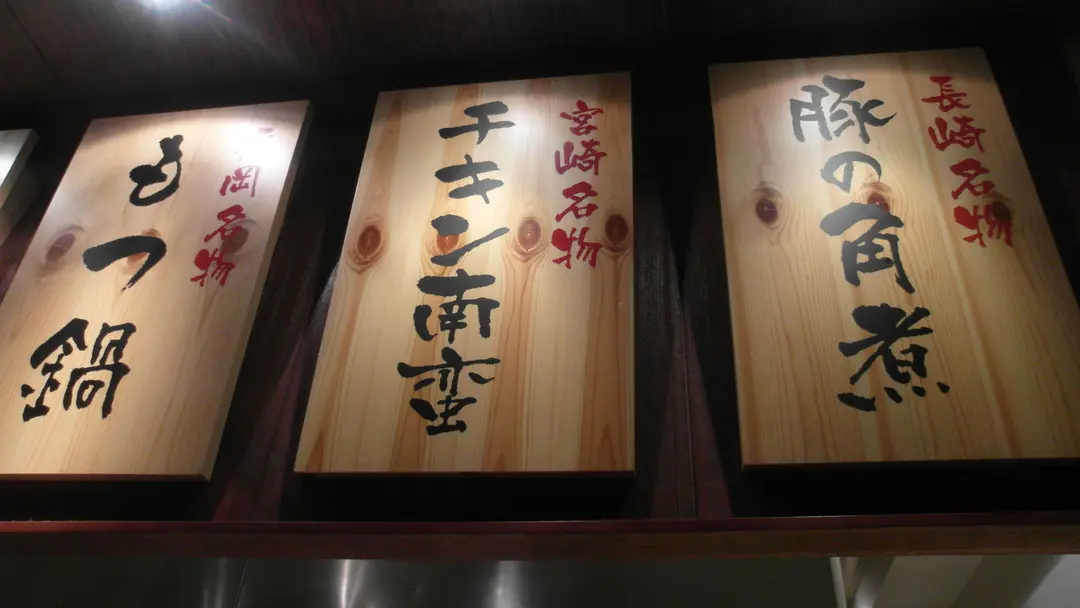 長崎名物
豚の角煮
宮崎名物
チキン南蛮
岡名物
もつ鍋